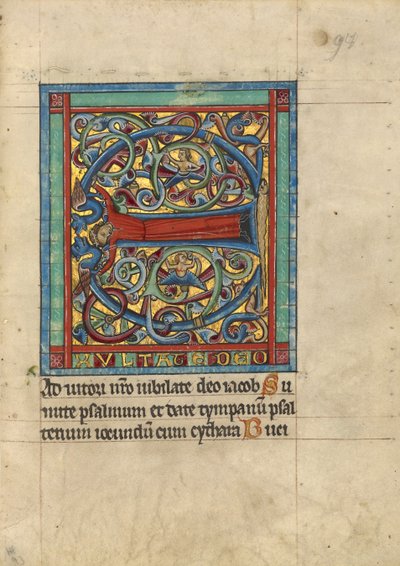 97
XVLTATE DEO
Ad iutori nr̄o iubilate deo iacob Su
mite psalmum et date tympanū psal
terium iocundū cum cythara Buci